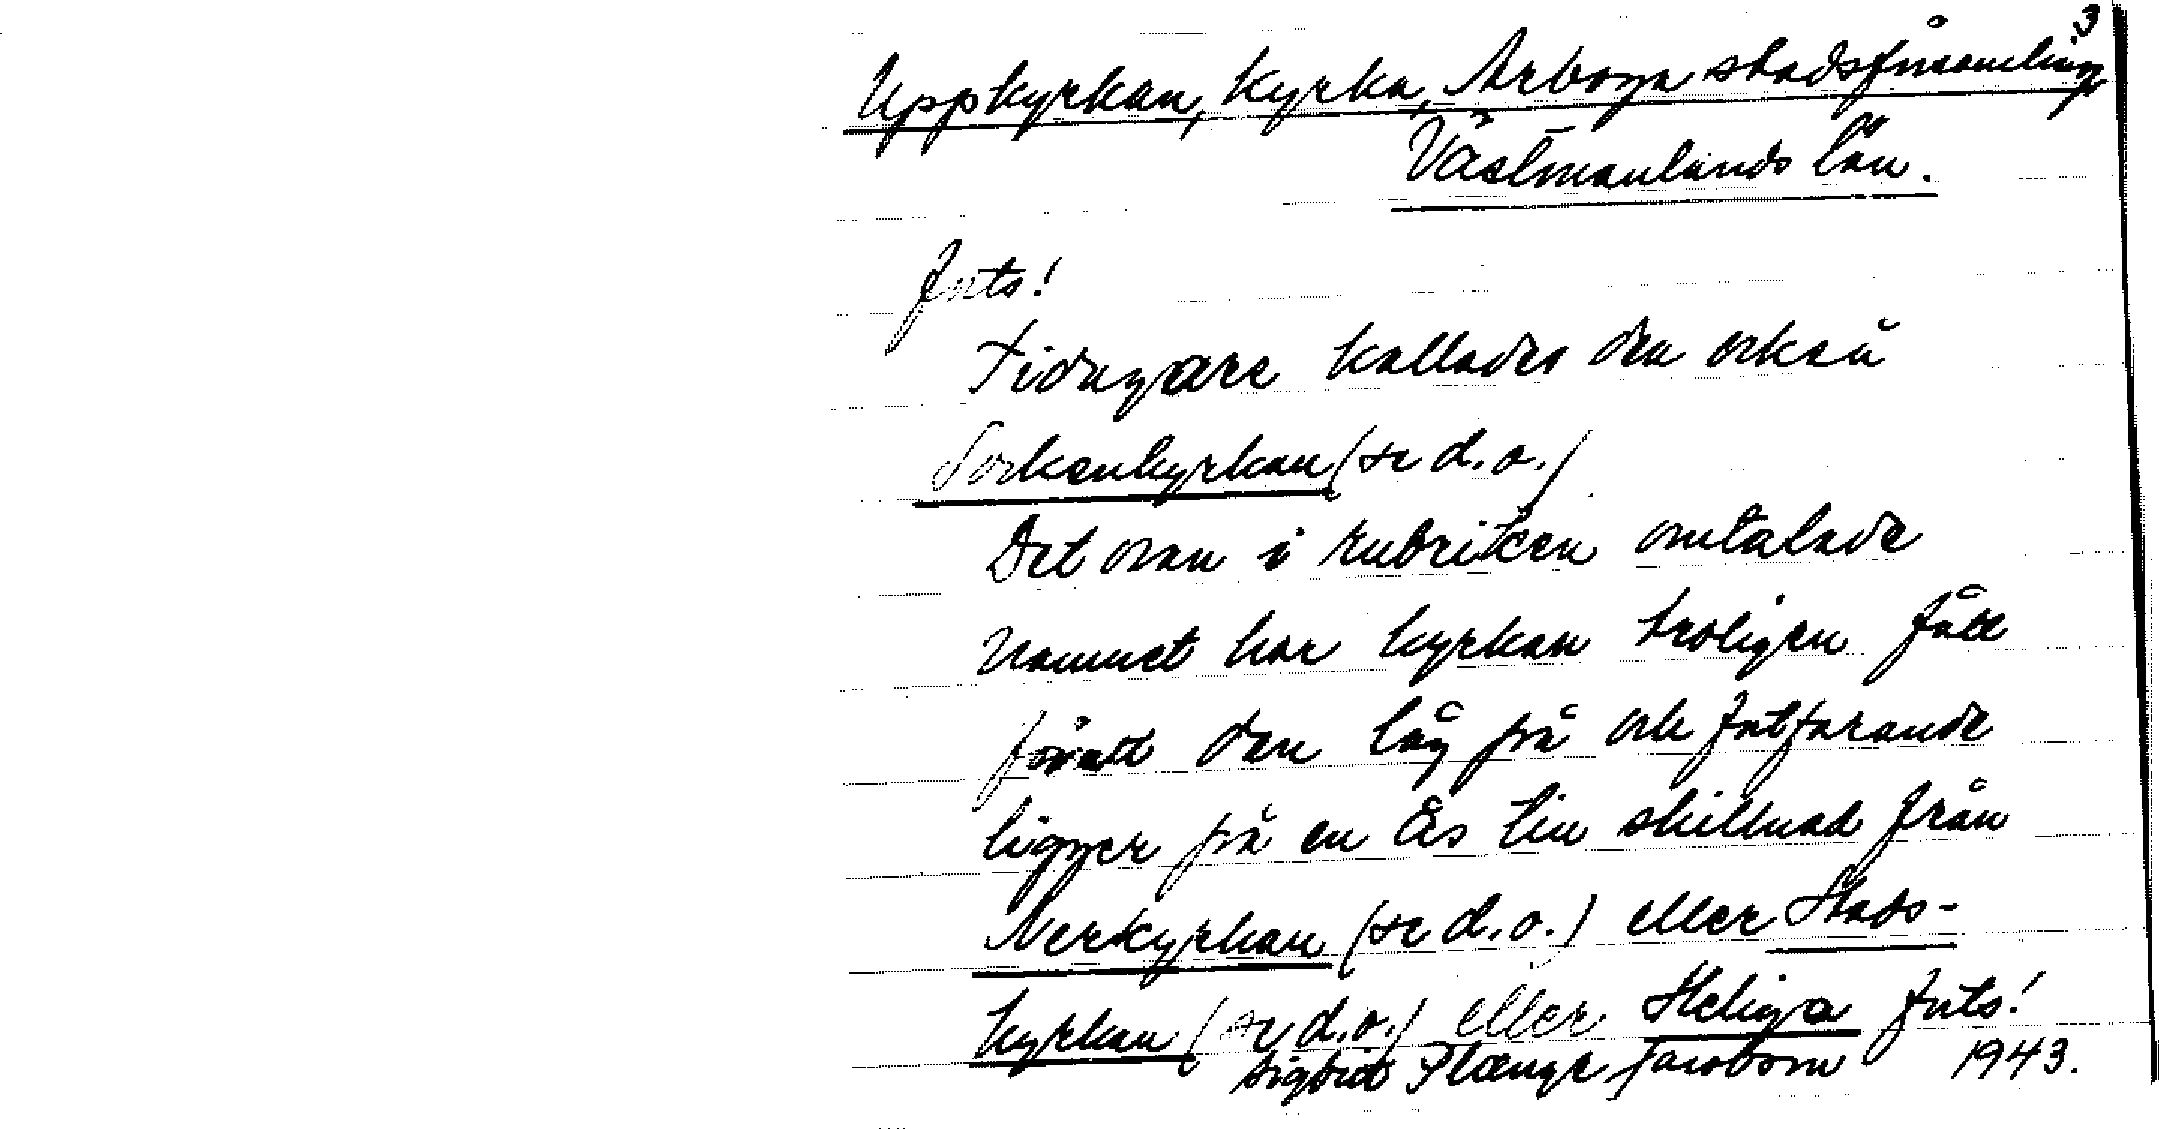 3
Uppkyrkan, kyrka, Arboga stadsförsamling
Västmanlands län.
forts!
Tidigare kallades den också
Sockenkyrkan (se d.o.)
Det ovan i rubriken omtalade
namnet har kyrkan troligen fått
för att den låg på och fortfarande
ligger på en ås till skillnad från
Nerkyrkan (se d.o.) eller Stads-
kyrkan (se d.o.) eller Heliga forts!
Sigrid Flænge Jacobson 1943.